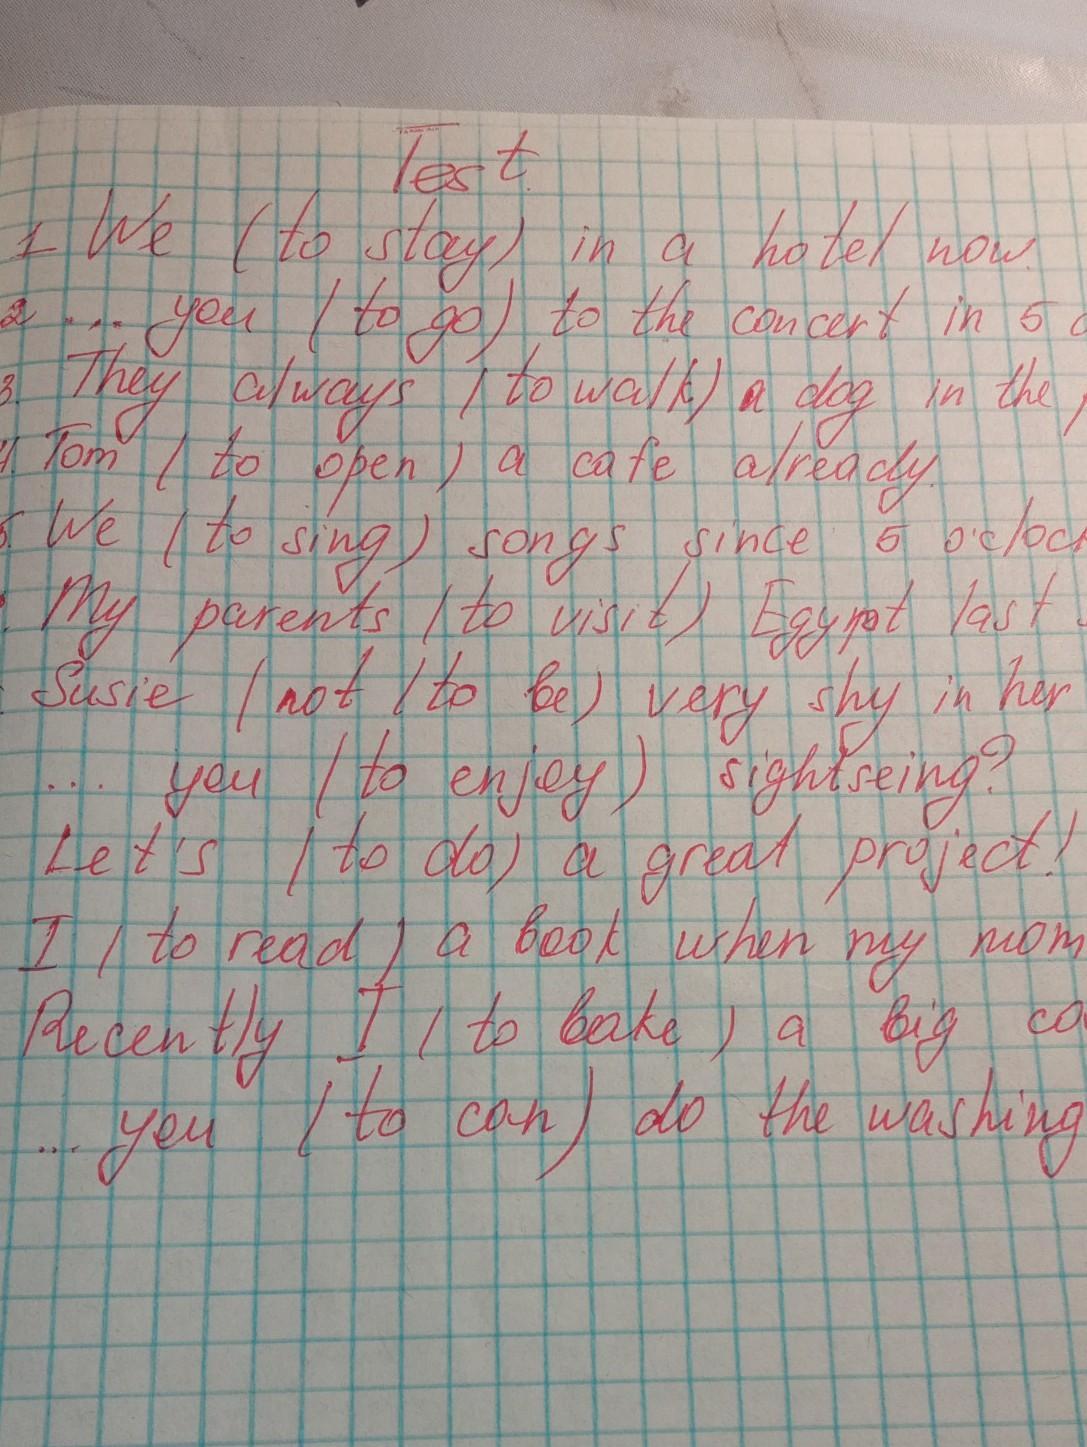 Test.
1 We (to stay) in a hotel now.
2 ... you (to go) to the concert in 5
3. They always (to walk) a dog in the
4. Tom (to open) a cafe already.
5. We (to sing) songs since 5 o'clock
My parents (to visit) Egypt last
Susie (not (to be) very shy in her
... you (to enjoy) sightseing?
Let's (to do) a great project!
I (to read) a book when my mom
Recently I (to bake) a big
... you (to can) do the washing